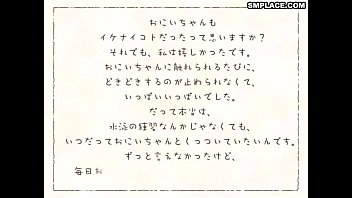 SMPLACE.COM
おにいちゃんも
イケナイコトだったって思いますか？
それでも、私は嬉しかったです。
おにいちゃんに触れられるたびに、
どきどきするのが止められなくて、
いっぱいいっぱいでした。
だって本当は、
水泳の練習なんかじゃなくても、
いつだっておにいちゃんとくっついていたいんです。
ずっと言えなかったけど、
毎日お